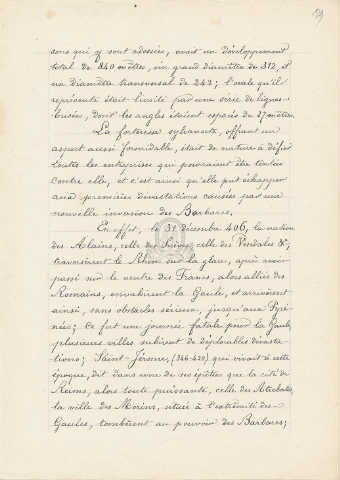 59
sons qui y sont adossées, avait un développement
total de 840 mètres, un grand diamètre de 312, et
un diamètre transversal de 243; l'ovale qu'il
représente était limité par une série de lignes
brisées, dont les angles étaient séparés de 27 mètres.
La forteresse sylvanecte, offrant un
aspect aussi formidable, était de nature à défier
toutes les entreprises qui pourraient être tentées
contre elle, et c'est ainsi qu'elle put échapper
aux premières dévastations causées par une
nouvelle invasion des Barbares.
En effet, le 31 décembre 406, la nation
des Alains, celle des Suèves, celle des Vandales &,
traversèrent le Rhin sur la glace, après avoir
passé sur le ventre des Francs, alors alliés des
Romains, envahirent la Gaule, et arrivèrent
ainsi, sans obstacles sérieux, jusqu'aux Pyré-
nées; Ce fut une journée fatale pour la Gaule,
plusieurs villes subirent de déplorables dévasta-
tions; Saint-Jérôme, (346-420) qui vivait à cette
époque, dit dans une de ses épîtres que la cité de
Reims, alors toute puissante, celle des Atrébates,
la ville des Morins, située à l'extrémité des
Gaules, tombèrent au pouvoir des Barbares;